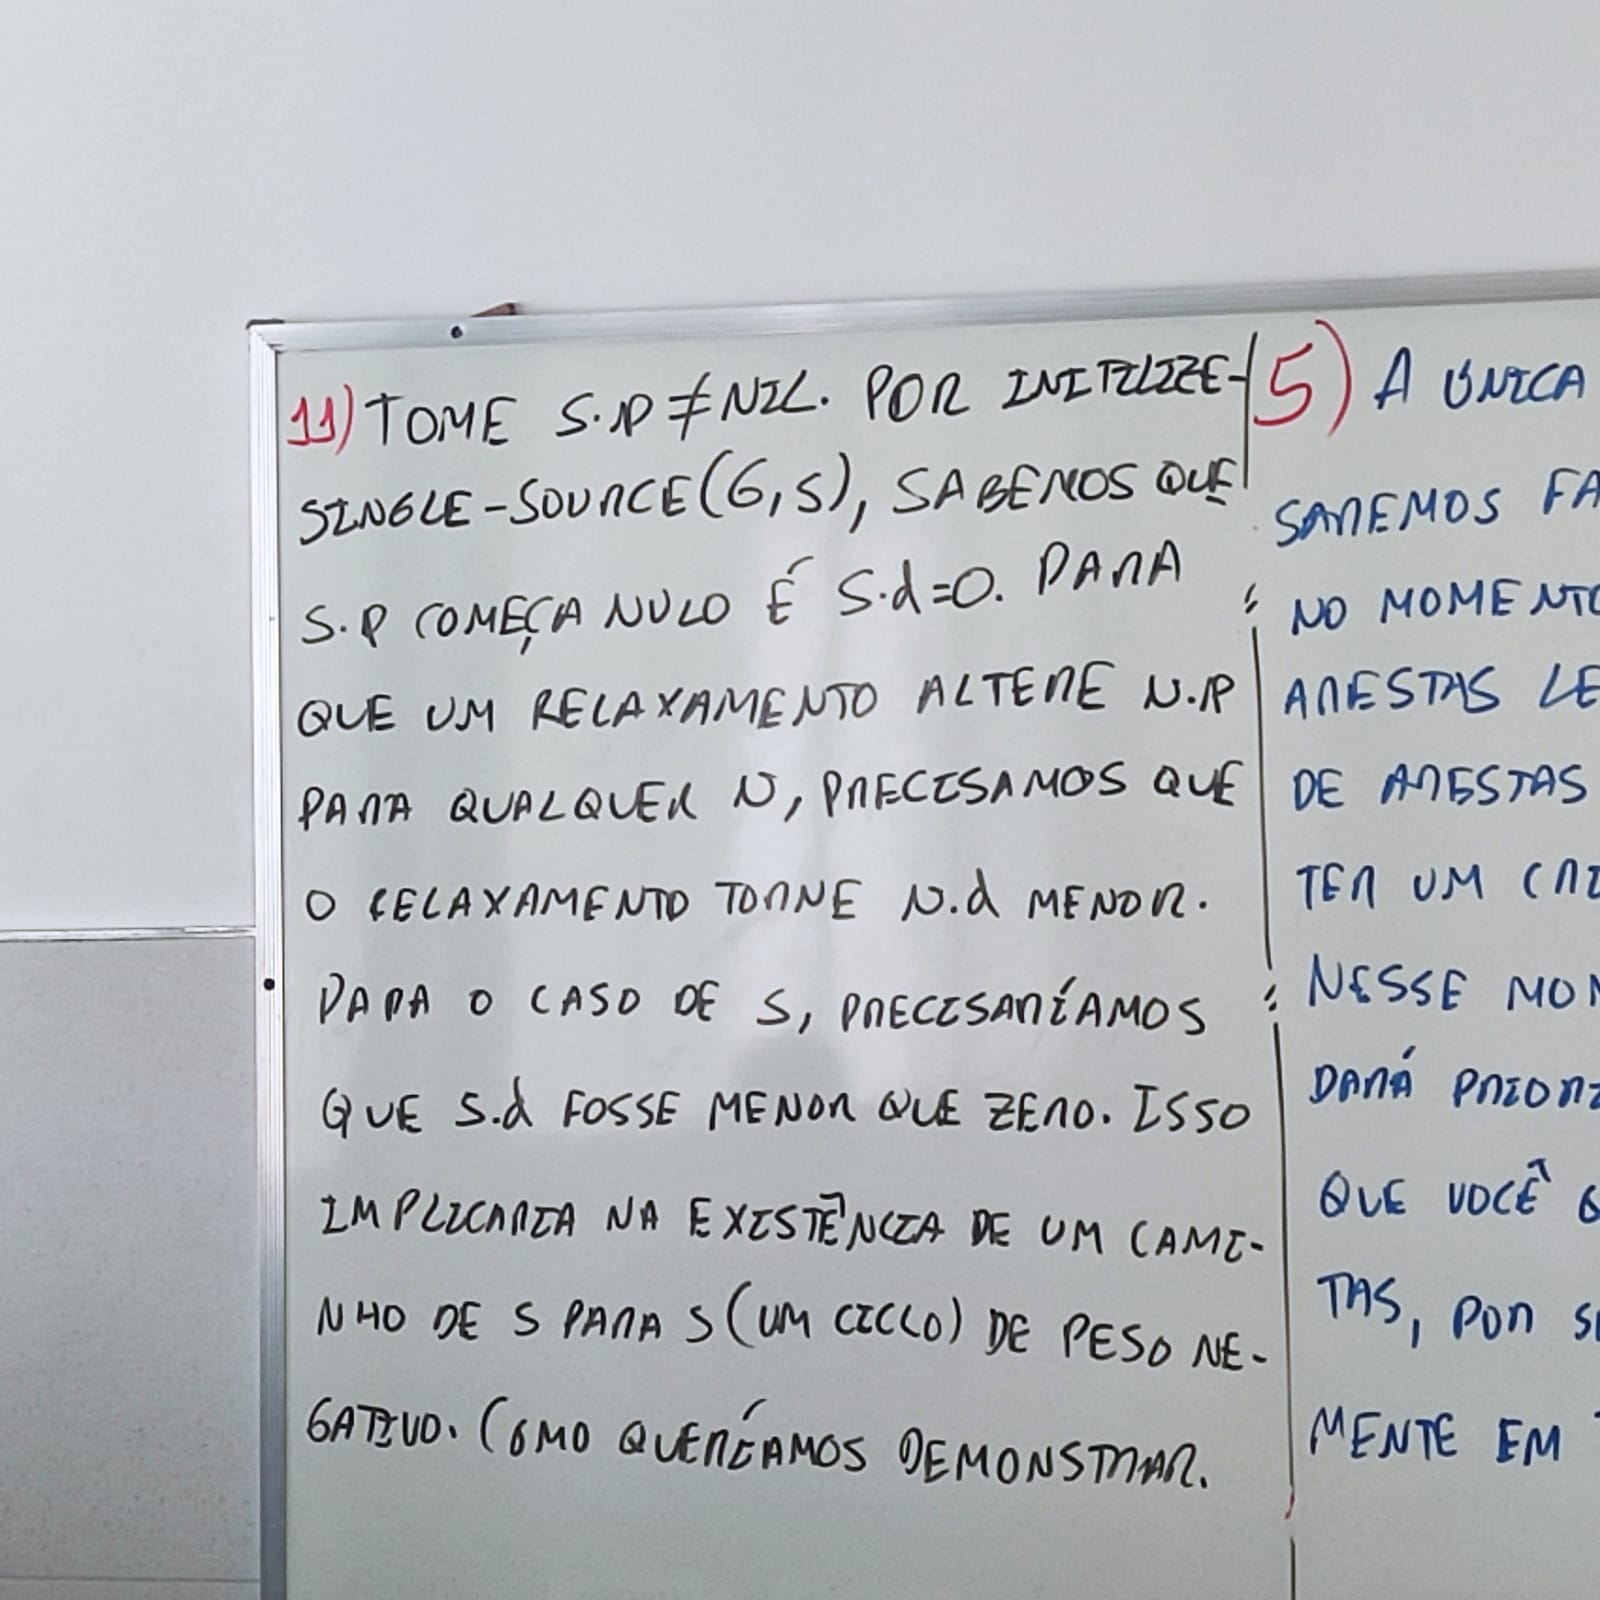 11) TOME S.P ≠ NIL. POR INITILIZE-
SINGLE-SOURCE(G,S), SABEMOS QUE
S.P COMEÇA NULO É S.d=0. PARA
QUE UM RELAXAMENTO ALTERE N.P
PARA QUALQUER N, PRECISAMOS QUE
O RELAXAMENTO TORNE N.d MENOR.
PARA O CASO DE S, PRECISARÍAMOS
QUE S.d FOSSE MENOR QUE ZERO. ISSO
IMPLICARIA NA EXISTÊNCIA DE UM CAMI-
NHO DE S PARA S (UM CICLO) DE PESO NE-
GATIVO. COMO QUERÍAMOS DEMONSTRAR.
5) A ÚNICA
SAREMOS FA
NO MOMENTO
ARESTAS LE
DE ARESTAS
TER UM CRI
NESSE MOM
DARÁ PRIORI
QUE VOCÊ
TAS, POR SE
MENTE EM